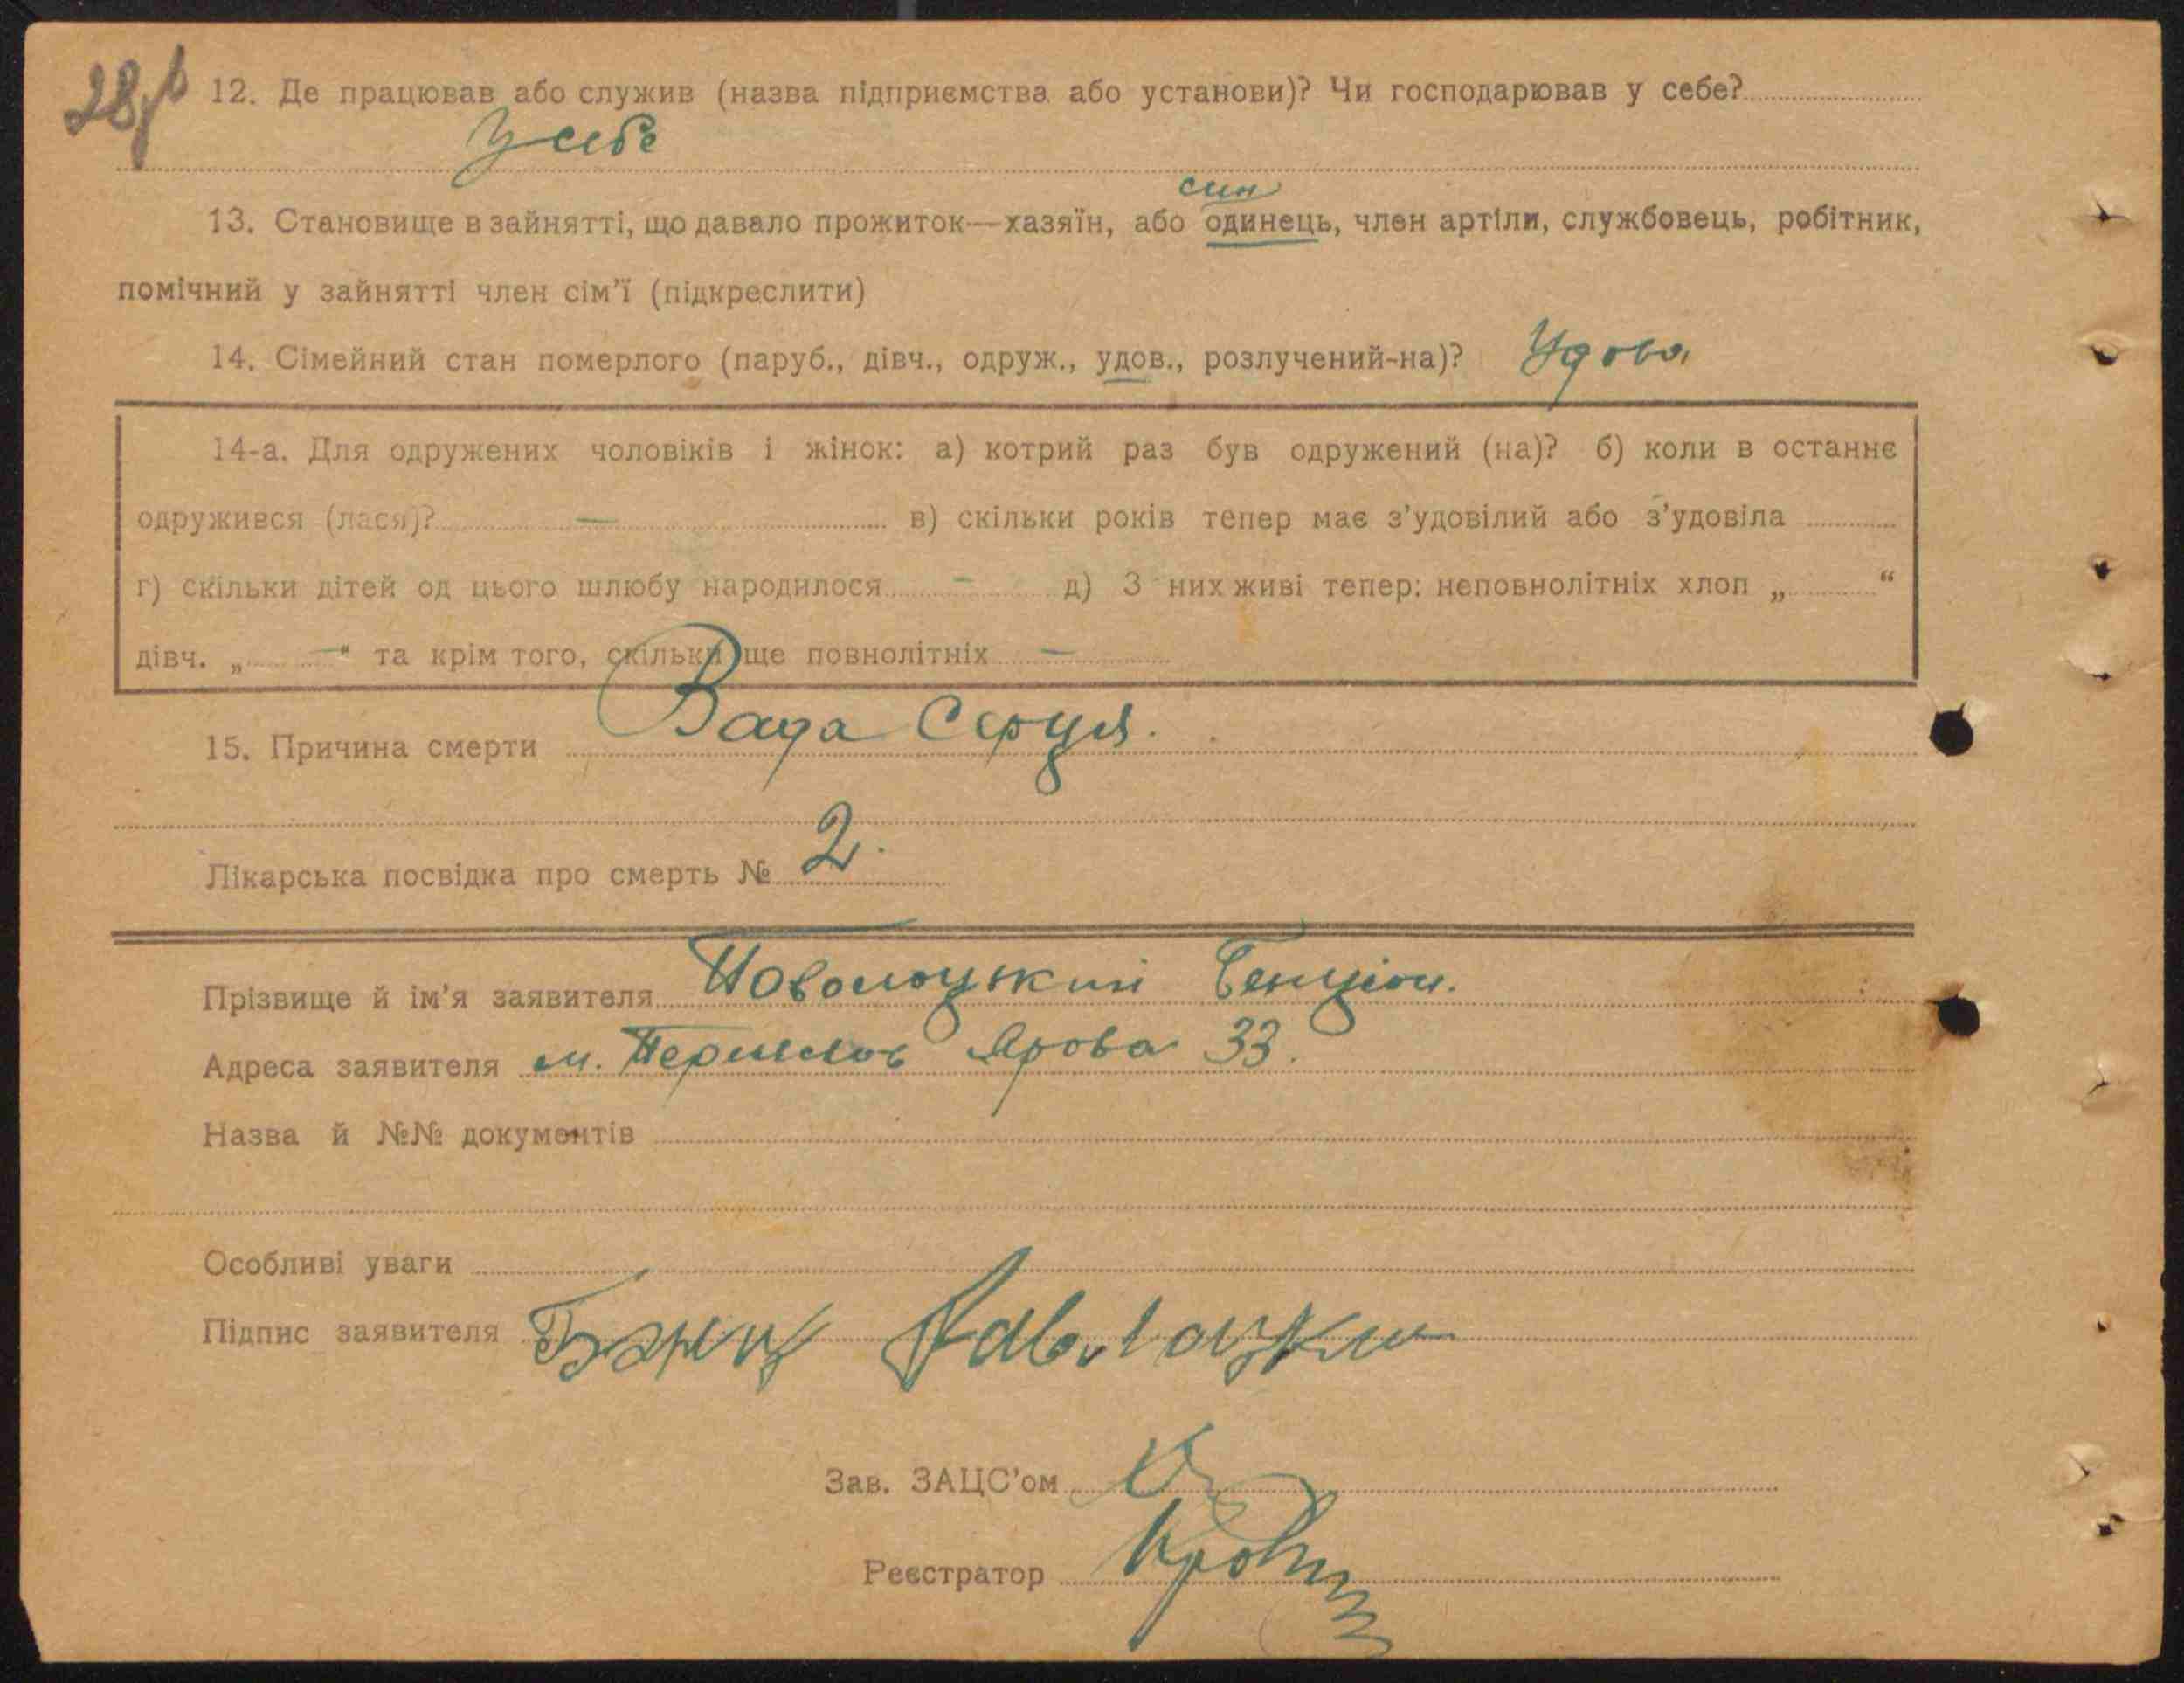 12. Де працював або служив (назва підприємства або установи)? Чи господарював у себе?
У себе
син
13. Становище в зайнятті, що давало прожиток—хазяїн, або одинець, член артіли, службовець, робітник,
помічний у зайнятті член сім'ї (підкреслити)
14. Сімейний стан померлого (паруб., дівч., одруж., удов., розлучений-на)? Удова
14-а. Для одружених чоловіків і жінок: а) котрий раз був одружений (на)? б) коли в останнє
одружився (лася)? — в) скільки років тепер має з'удовілий або з'удовіла
г) скільки дітей од цього шлюбу народилося — д) З них живі тепер: неповнолітніх хлоп „ “
дівч. „ — “ та крім того, скільки ще повнолітніх —
15. Причина смерти Вада Серця.
Лікарська посвідка про смерть № 2.
Прізвище й ім'я заявителя Бенціон.
Адреса заявителя м. Ярова 33.
Назва й №№ документів
Особливі уваги
Підпис заявителя
Зав. ЗАЦС'ом
Реєстратор